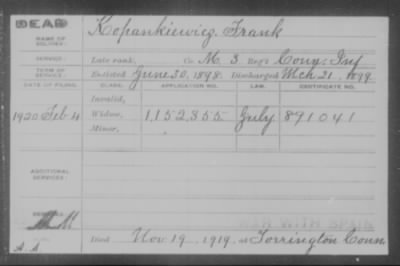 DEAD
NAME OF SOLDIER: Kopankiewicz, Frank
SERVICE: Late rank, Co. M, 3 Reg't Conn. Inf
TERM OF SERVICE: Enlisted June 30, 1898. Discharged Mch 21, 1899
DATE OF FILING. CLASS. APPLICATION NO. LAW. CERTIFICATE NO.
Invalid,
1920 Feb 4 Widow, 1,152,355 July 891041
Minor,
ADDITIONAL SERVICES:
WAR WITH SPAIN
Died Nov. 19, 1919, at Torrington Conn